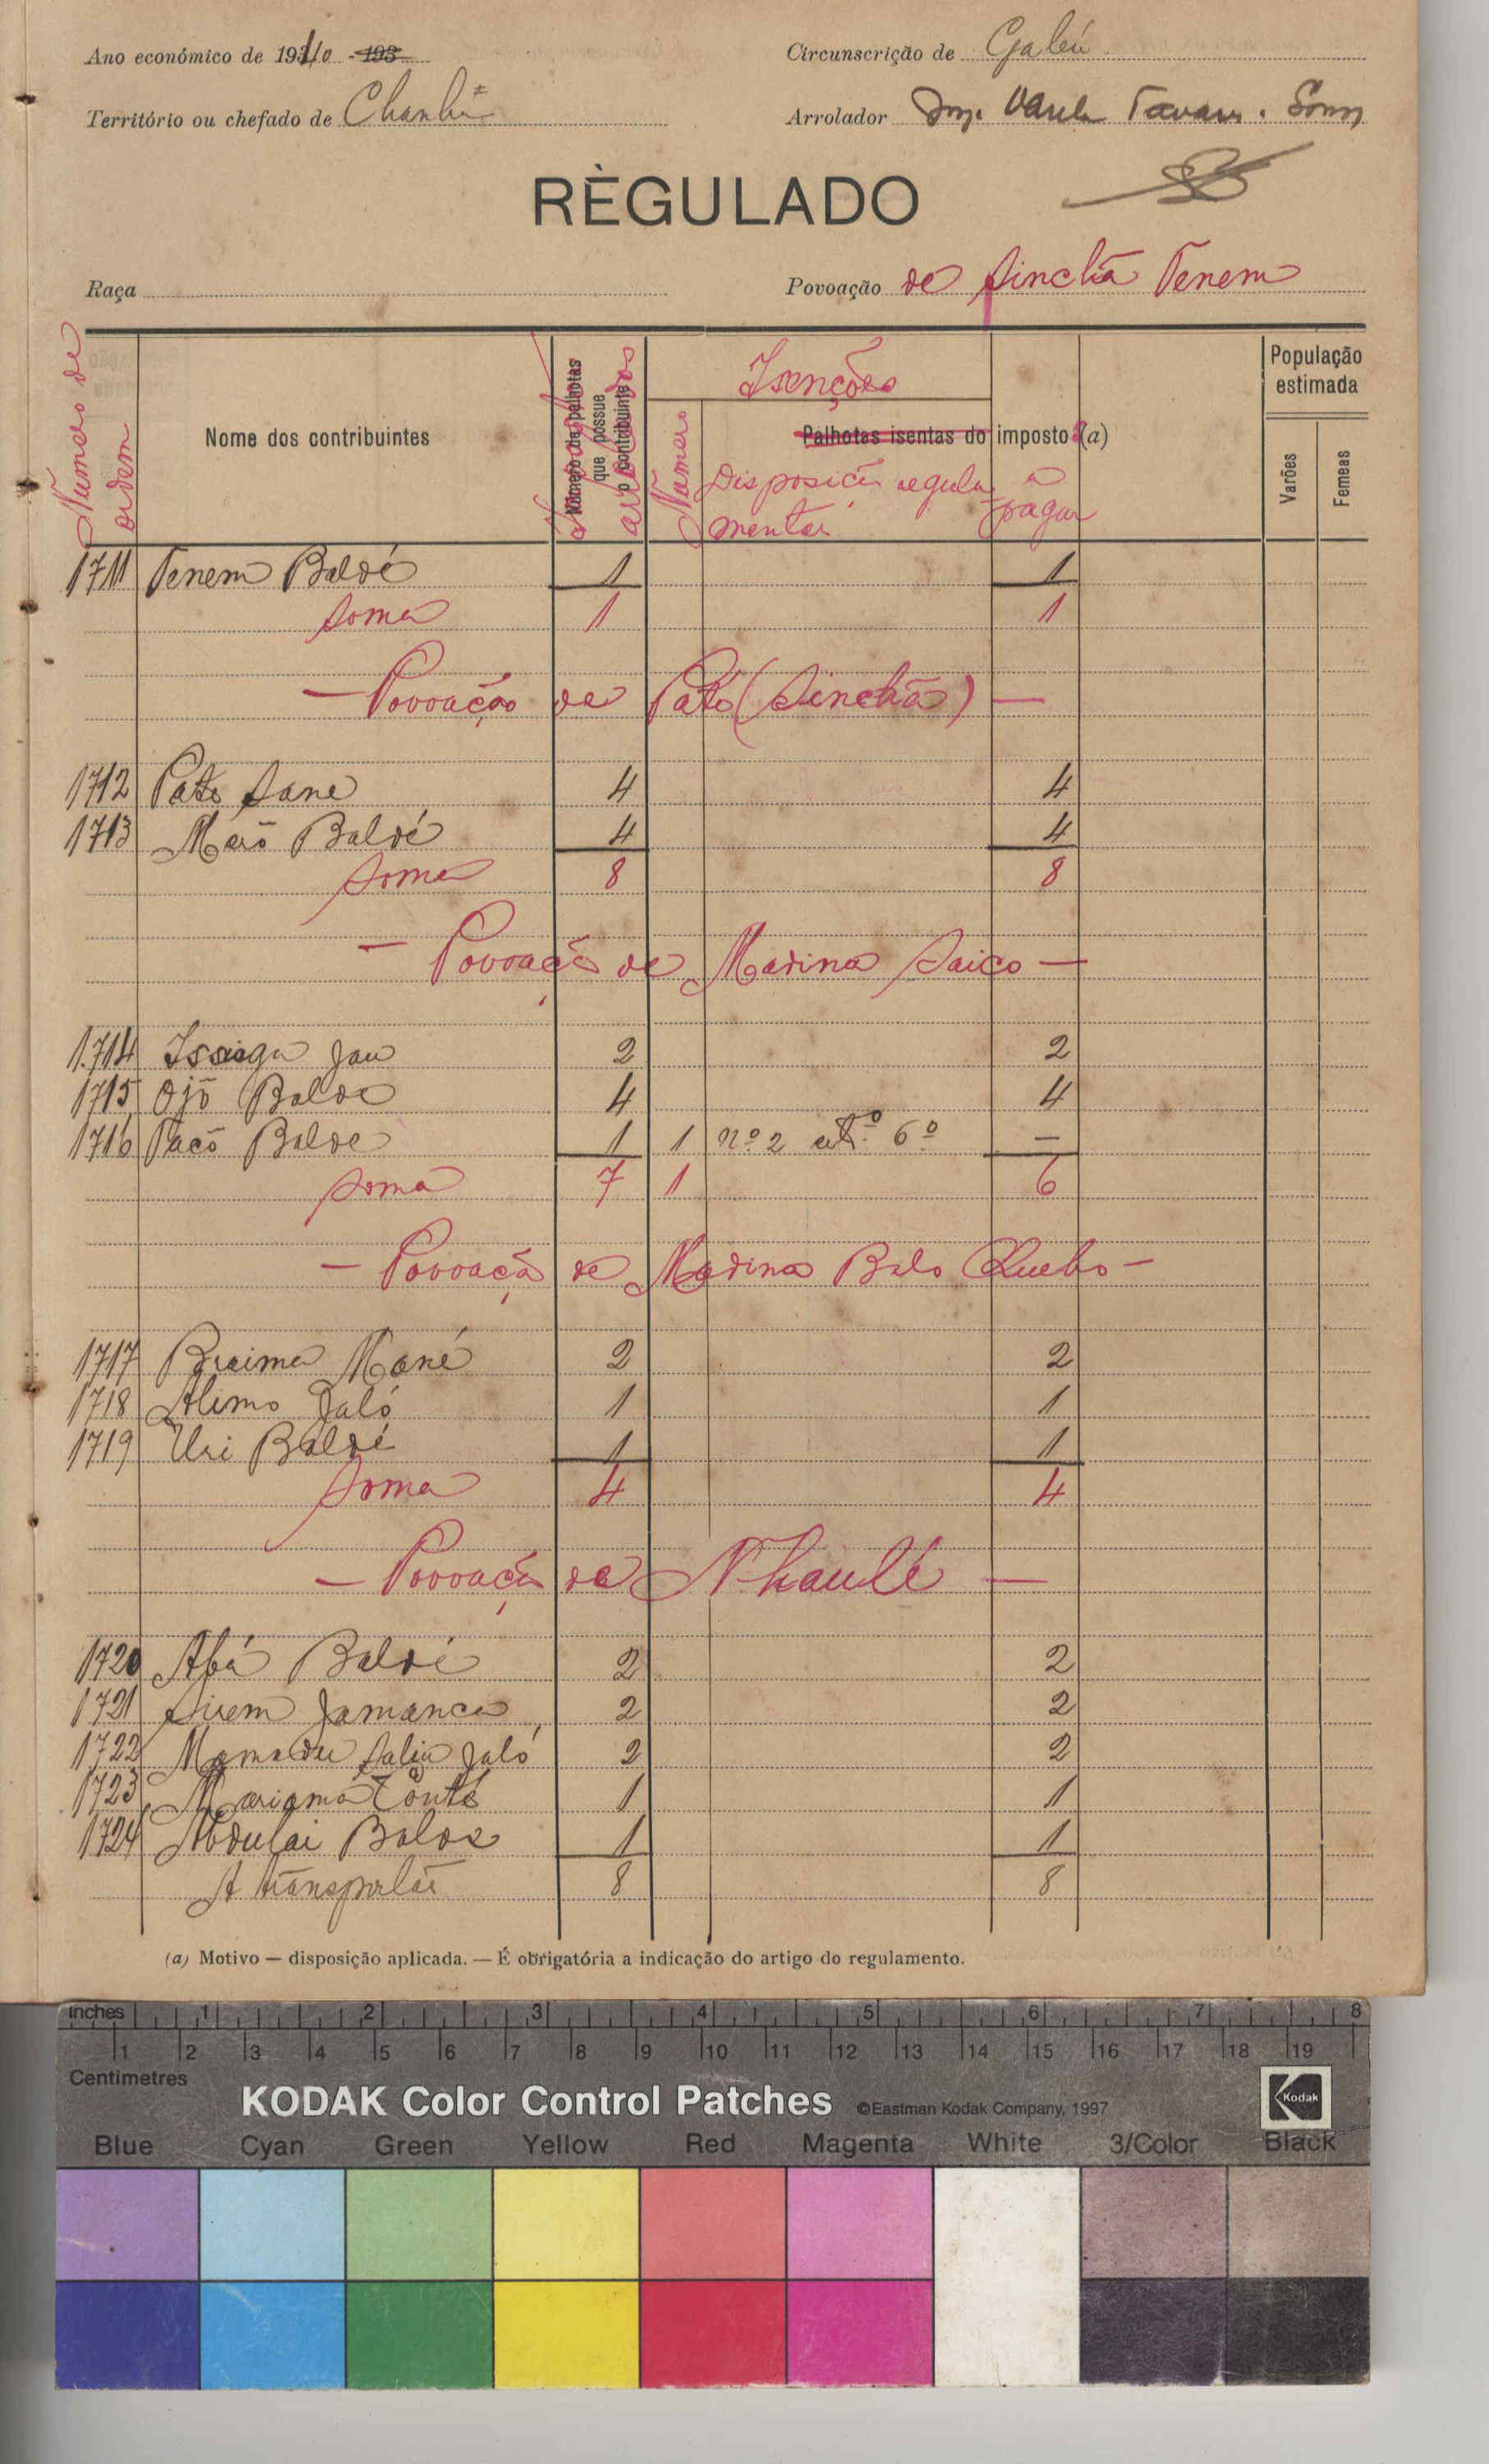 Ano económico de 1940 -193
Circunscrição de Gabú
Território ou chefado de Chanha
Arrolador Tavares
RÈGULADO
Raça
Povoação de Sinchã Tenem
Numero de ordem
Nome dos contribuintes
Número de palhotas que possue o contribuinte
arrolados
Isenções
Numero
Palhotas isentas do imposto (a)
Disposição regulamentar
a pagar
População estimada
Varões
Femeas
1711 Tenem Baldé 1 1
Soma 1 1
— Povoação de Paté (Sinchã) —
1712 Paté Sane 4 4
1713 Maró Baldé 4 4
Soma 8 8
— Povoação de Madina Saico —
1.714 Issiaga Jau 2 2
1715 Ojó Balde 4 4
1716 Pacó Balde 1 1 nº 2 artº 6º —
Soma 7 1 6
— Povoação de Madina Balo Quebo —
1717 Braima Mané 2 2
1718 Alimo Jaló 1 1
1719 Uri Baldé 1 1
Soma 4 4
— Povoação de Nhaulé —
1720 Abá Baldé 2 2
1721 Sirem Jamanca 2 2
1722 Mamadu Saliu Jaló 2 2
1723 Mariama Conté 1 1
1724 Abdulai Balde 1 1
A transportar 8 8
(a) Motivo — disposição aplicada. — É obrigatória a indicação do artigo do regulamento.
Inches 1 2 3 4 5 6 7 8
1 2 3 4 5 6 7 8 9 10 11 12 13 14 15 16 17 18 19
Centimetres
KODAK Color Control Patches ©Eastman Kodak Company, 1997
Kodak
Blue Cyan Green Yellow Red Magenta White 3/Color Black